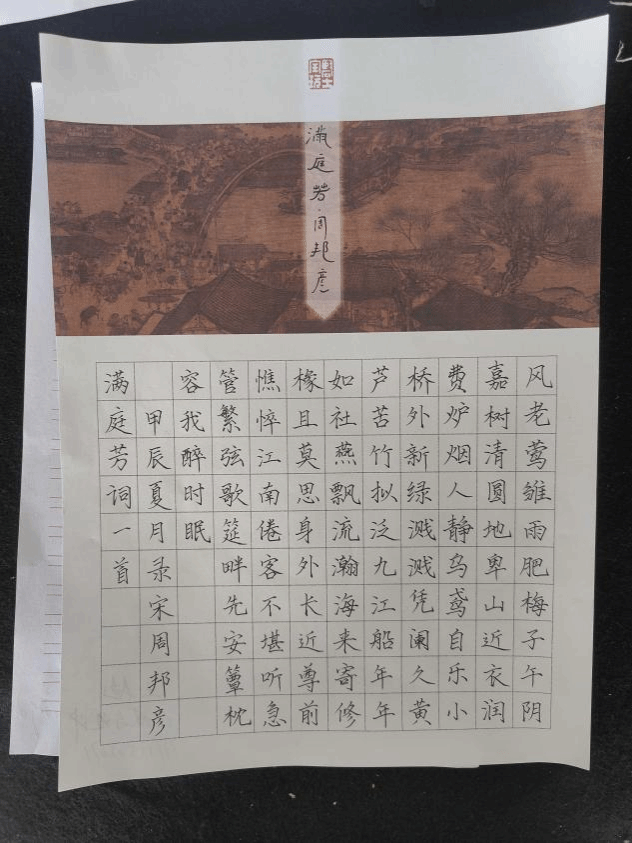 满庭芳·周邦彦
风老莺雏雨肥梅子午阴
嘉树清圆地卑山近衣润
费炉烟人静乌鸢自乐小
桥外新绿溅溅凭阑久黄
芦苦竹拟泛九江船年年
如社燕飘流瀚海来寄修
椽且莫思身外长近尊前
憔悴江南倦客不堪听急
管繁弦歌筵畔先安簟枕
容我醉时眠
甲辰夏月录宋周邦彦
满庭芳词一首